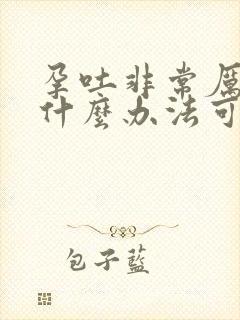 孕吐非常厲
什麼办法可
包子藍